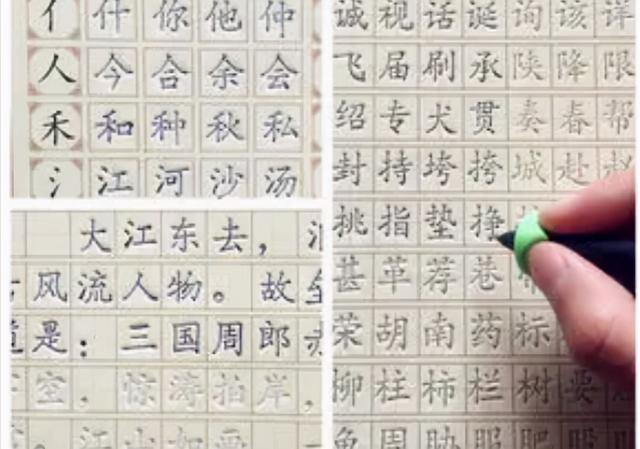 亻什你他仲
人今合余会
禾和种秋私
氵江河沙汤
大江东去，
风流人物。故
是：三国周郎
空，惊涛拍岸，
江山如画
诚视话诞询该详
飞届刷承陕降限
绍专犬贯奏春帮
封持垮挎城赴赵
挑指垫挣
甚革荐巷
荣胡南药标
柳柱柿栏树要
兔周胁服肥